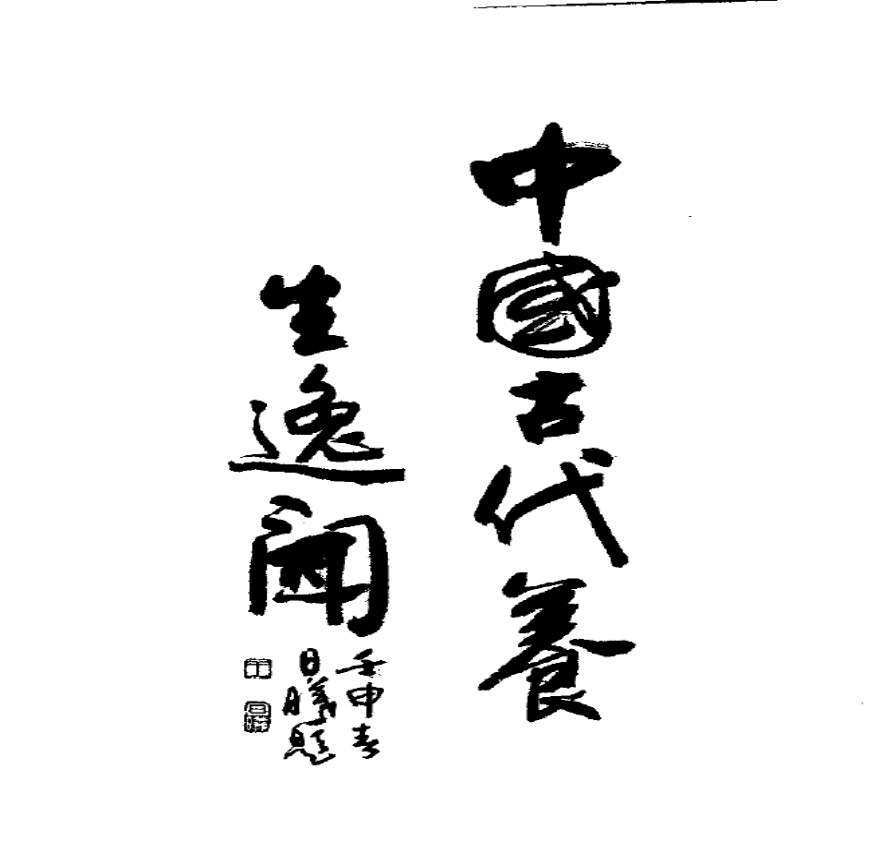 中國古代養
生逸聞
壬申春
日曦題